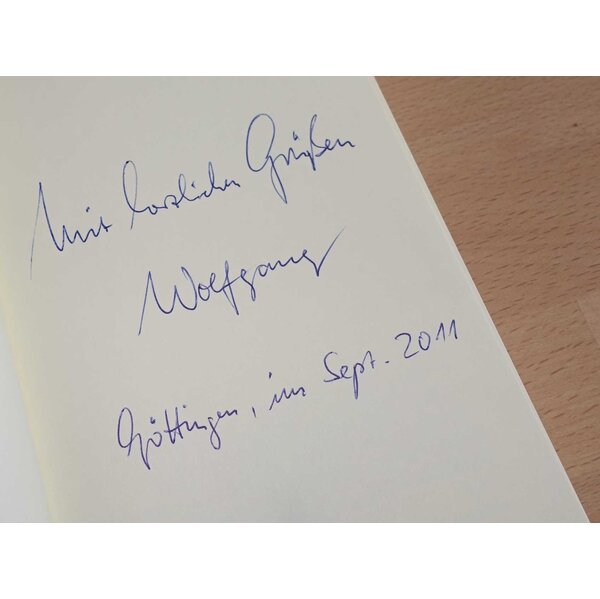 Mit herzlichen Grüßen
Wolfgang
Göttingen, im Sept. 2011